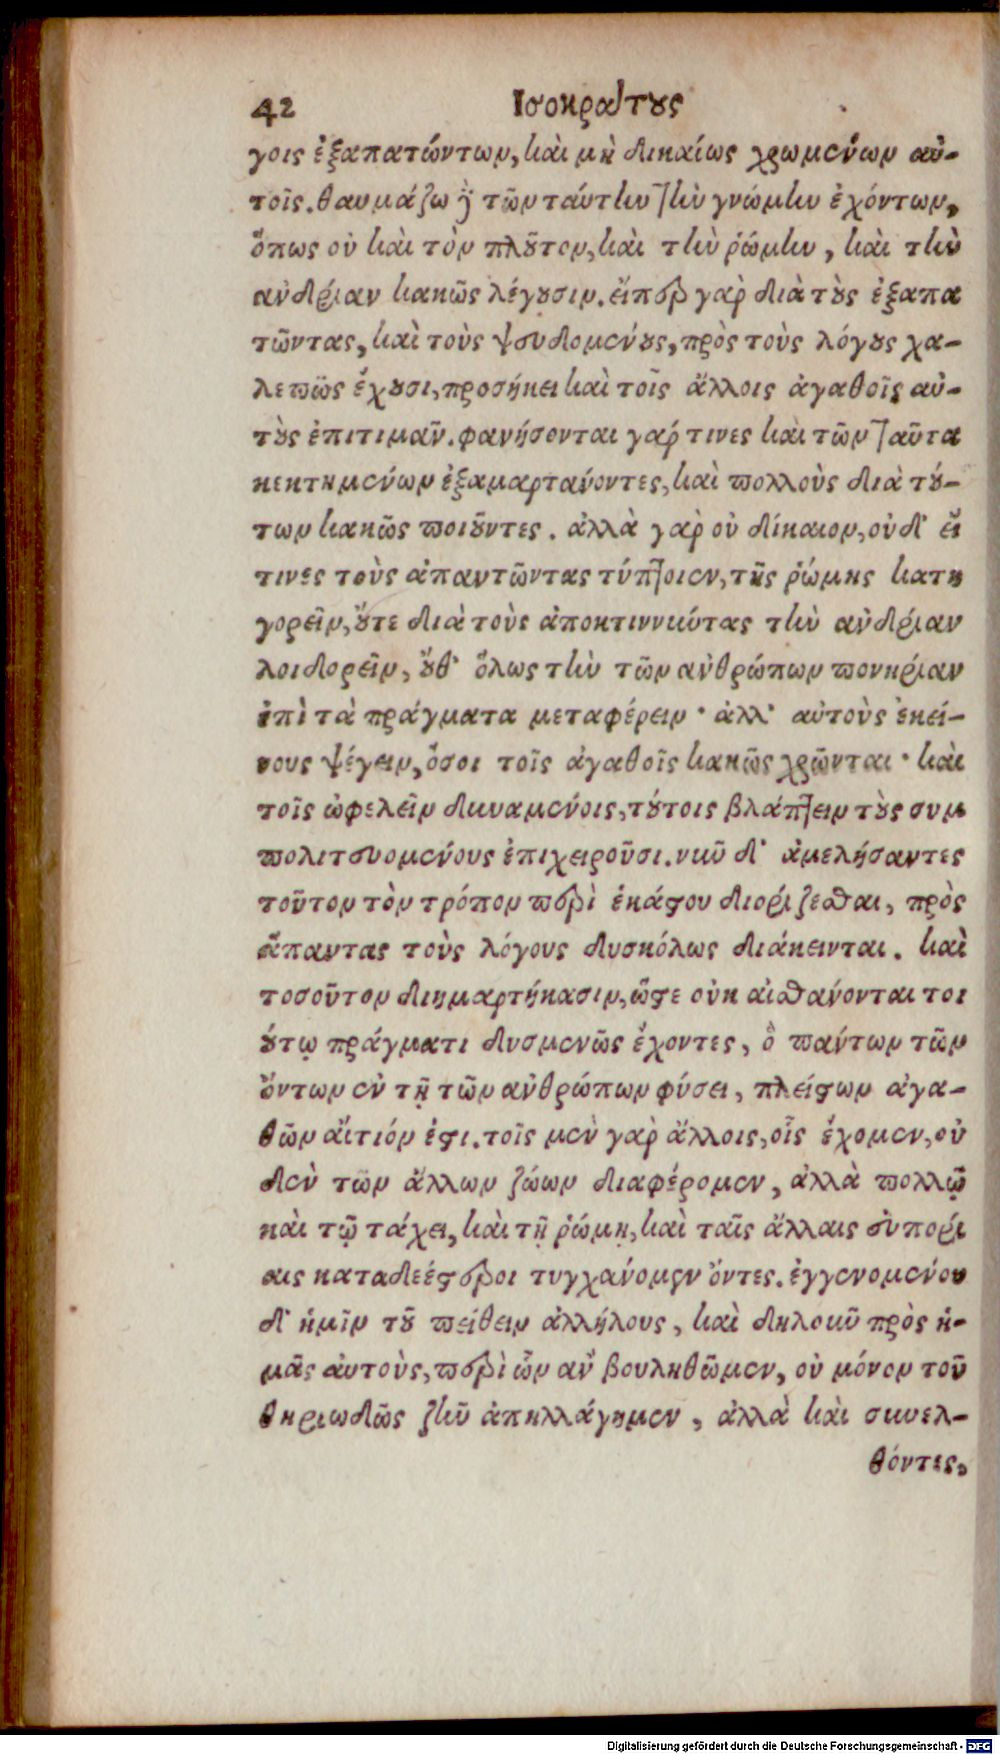 42 Ἰσοκράτους
γοις ἐξαπατώντων, καὶ μὴ δικαίως χρωμένων αὐ-
τοῖς. θαυμάζω δὲ τῶν ταύτην τὴν γνώμην ἐχόντων,
ὅπως οὐ καὶ τὸν πλοῦτον, καὶ τὴν ῥώμην, καὶ τὴν
ἀνδρίαν κακῶς λέγουσιν. εἴπερ γὰρ διὰ τοὺς ἐξαπα
τῶντας, καὶ τοὺς ψευδομένους, πρὸς τοὺς λόγους χα-
λεπῶς ἔχουσι, προσήκει καὶ τοῖς ἄλλοις ἀγαθοῖς αὐ-
τοὺς ἐπιτιμᾶν. φανήσονται γάρ τινες καὶ τῶν ταῦτα
κεκτημένων ἐξαμαρτάνοντες, καὶ πολλοὺς διὰ τού-
των κακῶς ποιοῦντες. ἀλλὰ γὰρ οὐ δίκαιον, οὐδ' εἴ
τινες τοὺς ἀπαντῶντας τύπτοιεν, τῆς ῥώμης κατη
γορεῖν, οὔτε διὰ τοὺς ἀποκτιννύντας τὴν ἀνδρίαν
λοιδορεῖν, οὔθ' ὅλως τὴν τῶν ἀνθρώπων πονηρίαν
ἐπὶ τὰ πράγματα μεταφέρειν· ἀλλ' αὐτοὺς ἐκεί-
νους ψέγειν, ὅσοι τοῖς ἀγαθοῖς κακῶς χρῶνται· καὶ
τοῖς ὠφελεῖν δυναμένοις, τούτοις βλάπτειν τοὺς συμ
πολιτευομένους ἐπιχειροῦσι. νῦν δ' ἀμελήσαντες
τοῦτον τὸν τρόπον περὶ ἑκάστου διορίζεσθαι, πρὸς
ἅπαντας τοὺς λόγους δυσκόλως διάκεινται. καὶ
τοσοῦτον διημαρτήκασιν, ὥστε οὐκ αἰσθάνονται τοι
ούτῳ πράγματι δυσμενῶς ἔχοντες, ὃ πάντων τῶν
ὄντων ἐν τῇ τῶν ἀνθρώπων φύσει, πλείστων ἀγα-
θῶν αἴτιόν ἐστι. τοῖς μὲν γὰρ ἄλλοις, οἷς ἔχομεν, οὐ
δὲν τῶν ἄλλων ζώων διαφέρομεν, ἀλλὰ πολλῷ
καὶ τῷ τάχει, καὶ τῇ ῥώμῃ, καὶ ταῖς ἄλλαις εὐπορί
αις καταδεέστεροι τυγχάνομεν ὄντες. ἐγγενομένου
δ' ἡμῖν τοῦ πείθειν ἀλλήλους, καὶ δηλοῦν πρὸς ἡ-
μᾶς αὐτοὺς, περὶ ὧν ἂν βουληθῶμεν, οὐ μόνον τοῦ
θηριωδῶς ζῆν ἀπηλλάγημεν, ἀλλὰ καὶ συνελ-
θόντες,
Digitalisierung gefördert durch die Deutsche Forschungsgemeinschaft - DFG